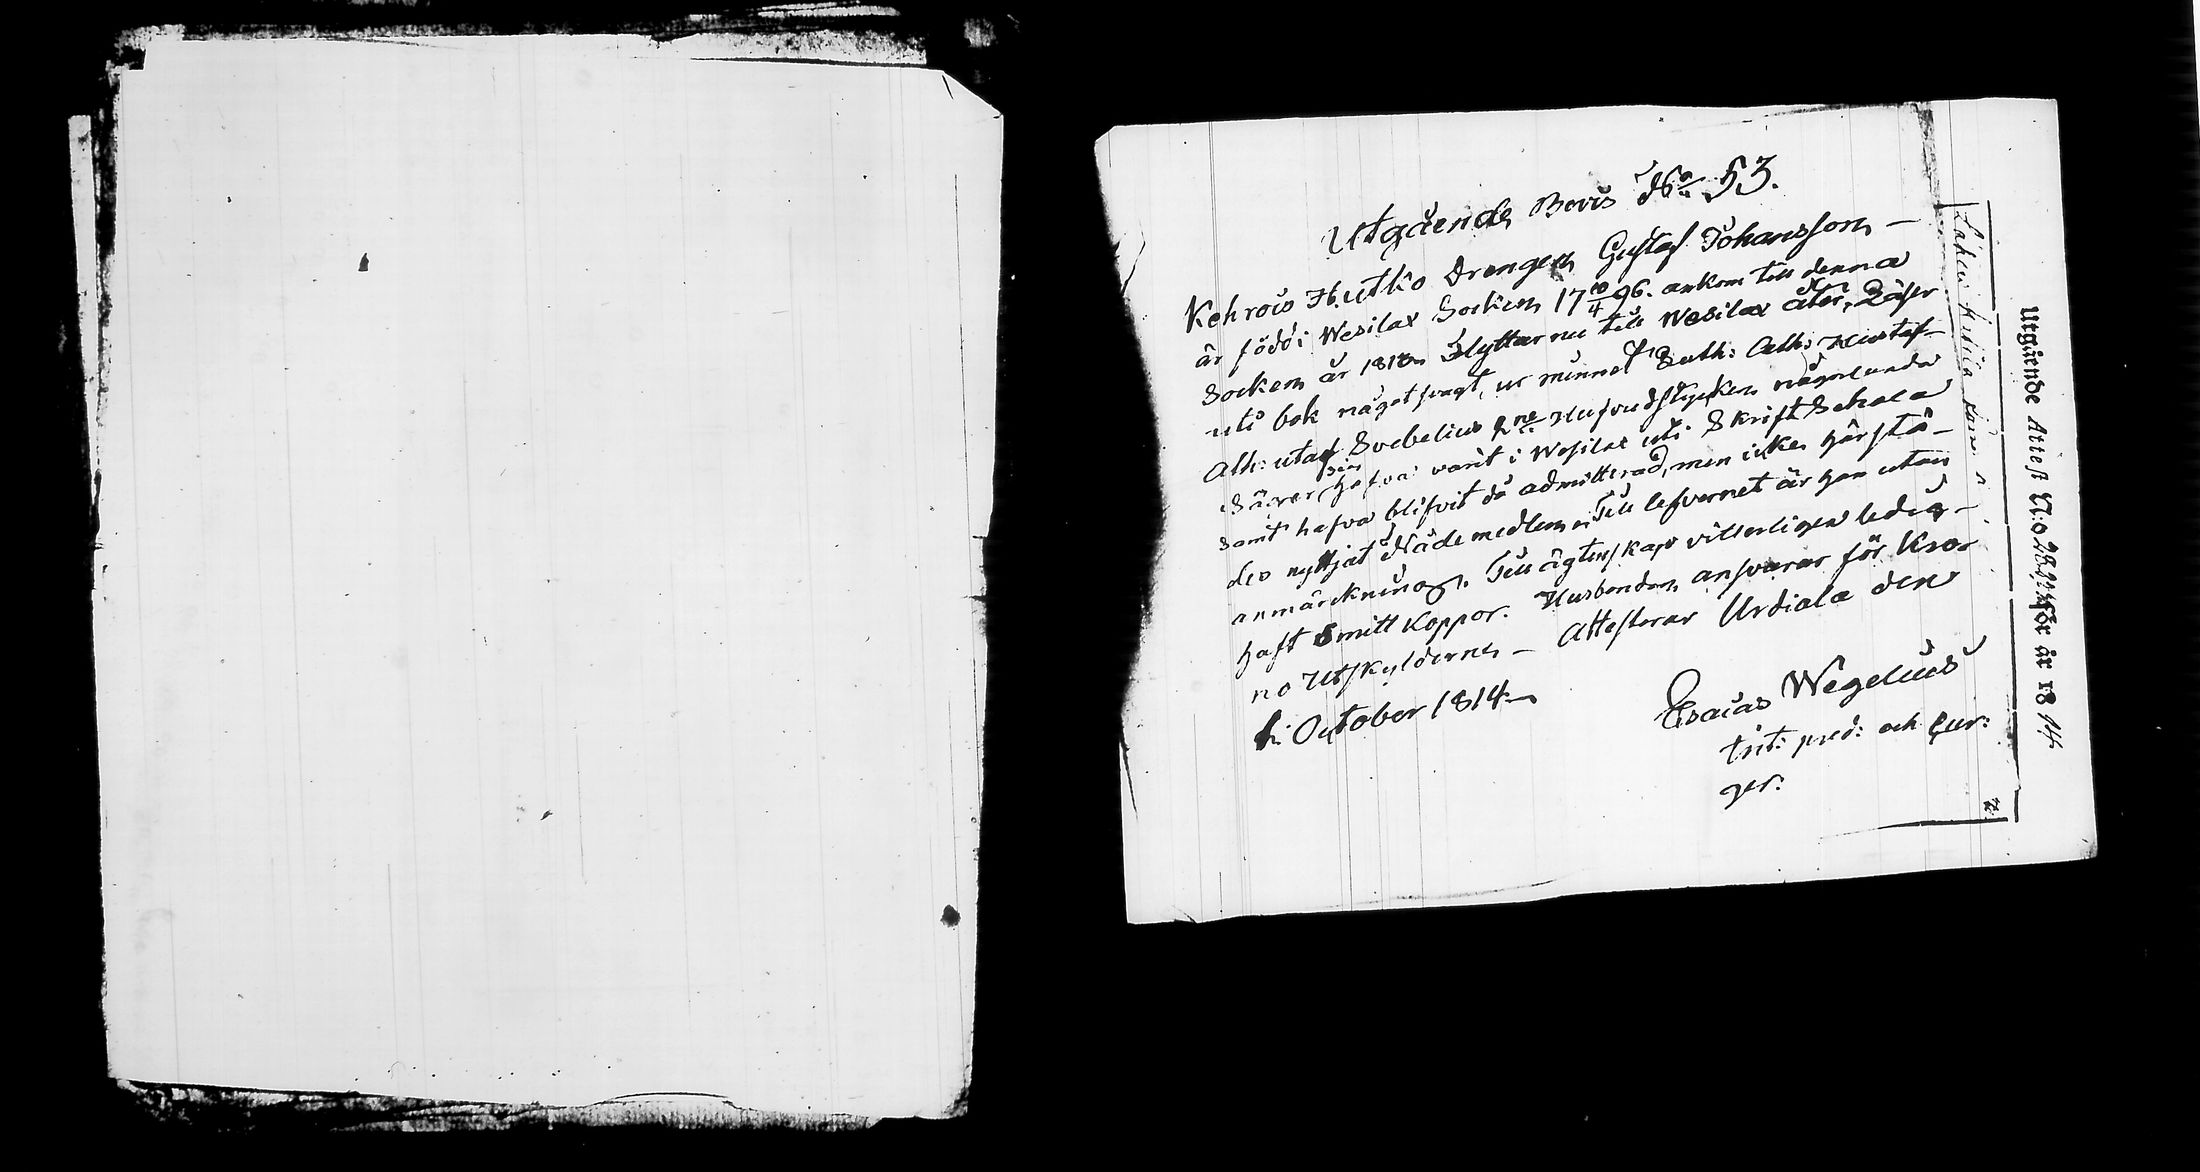 Utgående Bevis No 53.
Kehrois Hutko Drengen Gustaf Johansson
är född i Wesilax Socken 17 10/4 96. ankom till denna
Socken år 1812 flyttar nu till Wesilax åter, Läser
uti bok något svagt, ur minnet Luth: Cath: Hustaf-
Ath: utaf Svebelius 2ne Hufvudstycken någorlunda
Säger sig hafva varit i Wesilax uti Skrift Schola
samt hafva blifvit då admitterad, men icke härstä-
des nyttjat Nådemedlen. Till lefvernet är han utan
anmärckning. Till ägtenskap vitterligen ledig-
haft Smitt koppor. Husbonden ansvarar för Kro-
no Utskylderne – Attesterar Urdiala den
October 1814
Esaias Wegelius
pred: och Cur:
ger.
Utgående Attest N:o för år 1814